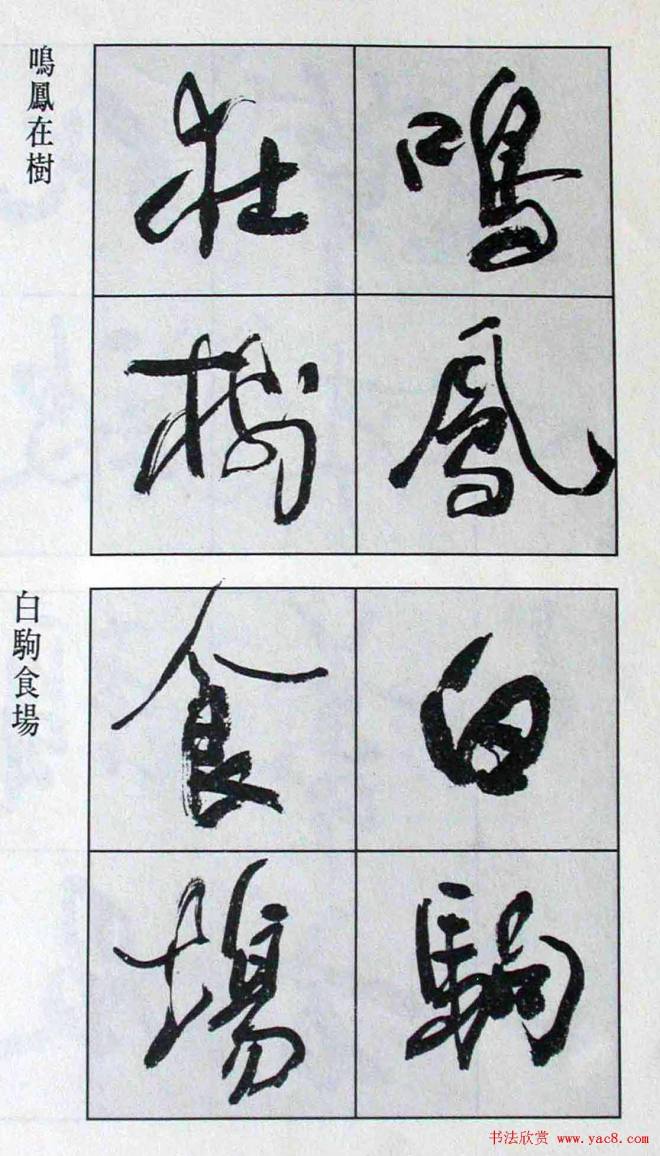 鳴鳳在樹
鳴鳳
在樹
白駒食場
白駒
食場
书法欣赏 www.yac8.com